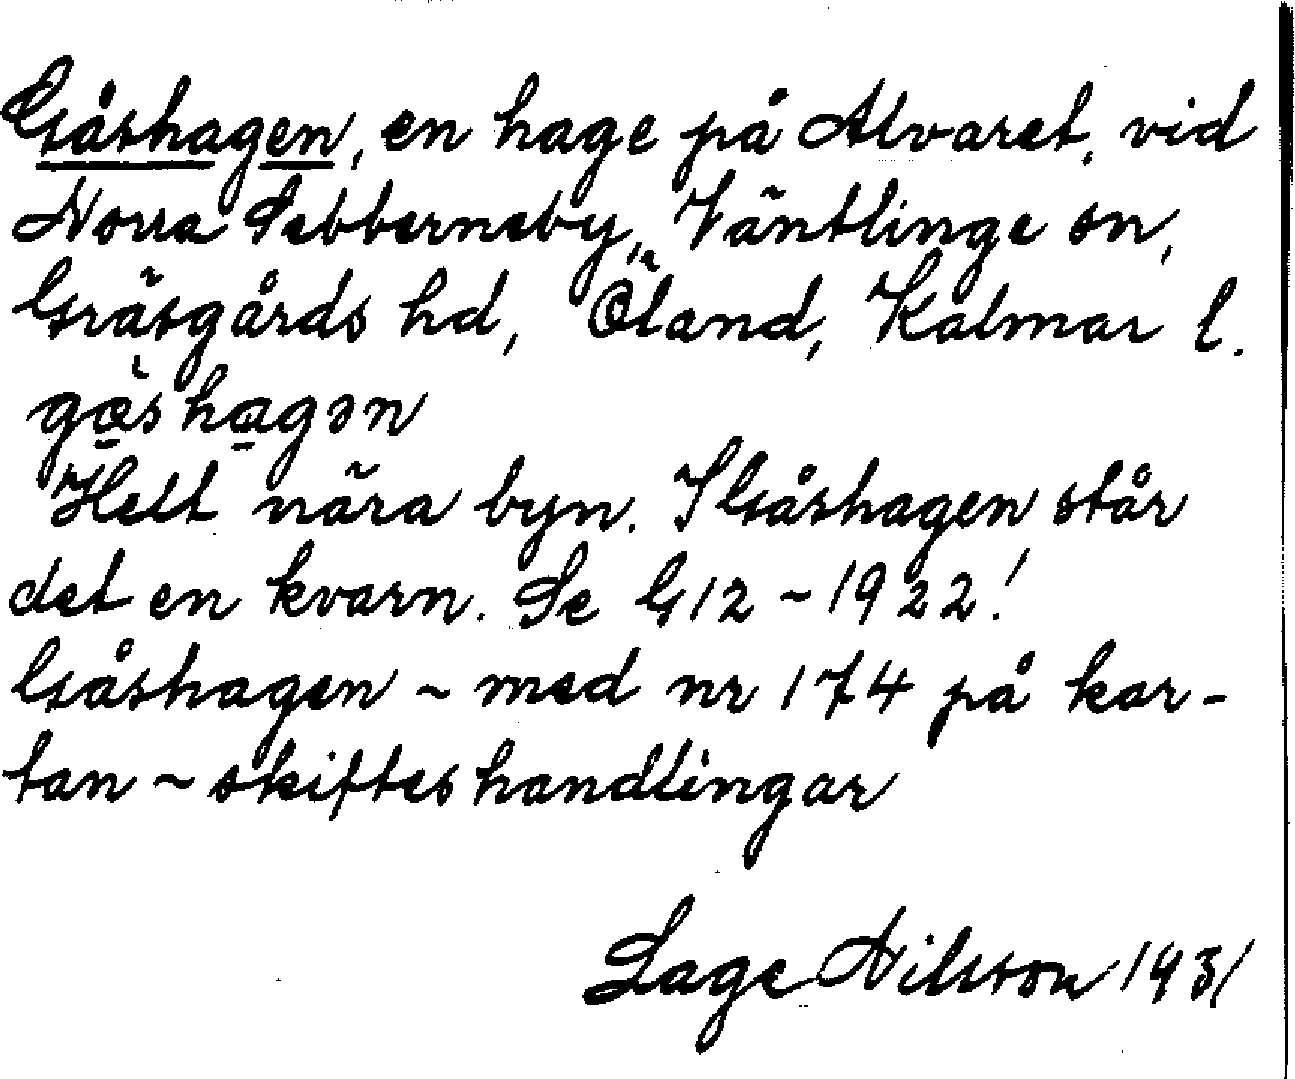 Gåshagen, en hage på Alvaret, vid
Norra Sebberneby, Väntlinge sn,
Gräsgårds hd, Öland, Kalmar l.
gåshagən
Helt nära byn. I Gåshagen står
det en kvarn. Se G12 - 1922!
Gåshagen - med nr 174 på kar-
tan - skifteshandlingar
Lage Nilsson 1931